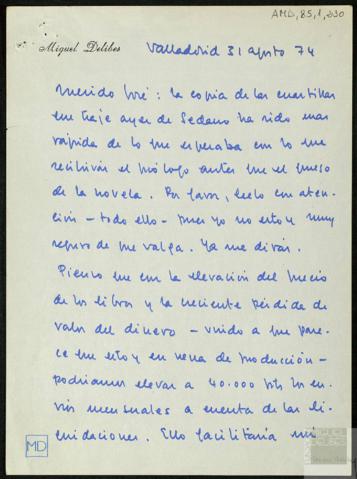 AMD, 85, 1, 230
Miguel Delibes
Valladolid 31 agosto 74
Querido José: la copia de las cuartillas
que traje ayer de Sedano ha sido más
rápida de lo que esperaba con lo que
recibirás el prólogo antes que el grueso
de la novela. Por favor, léelo con aten-
ción – todo ello – pues yo no estoy muy
seguro de que valga. Ya me dirás.
Pienso que con la elevación del precio
de los libros y la creciente pérdida de
valor del dinero – unido a que pare-
ce que estoy en vena de producción –
podríamos elevar a 40.000 pts los en-
víos mensuales a cuenta de las li-
quidaciones. Ello facilitaría mi
MD